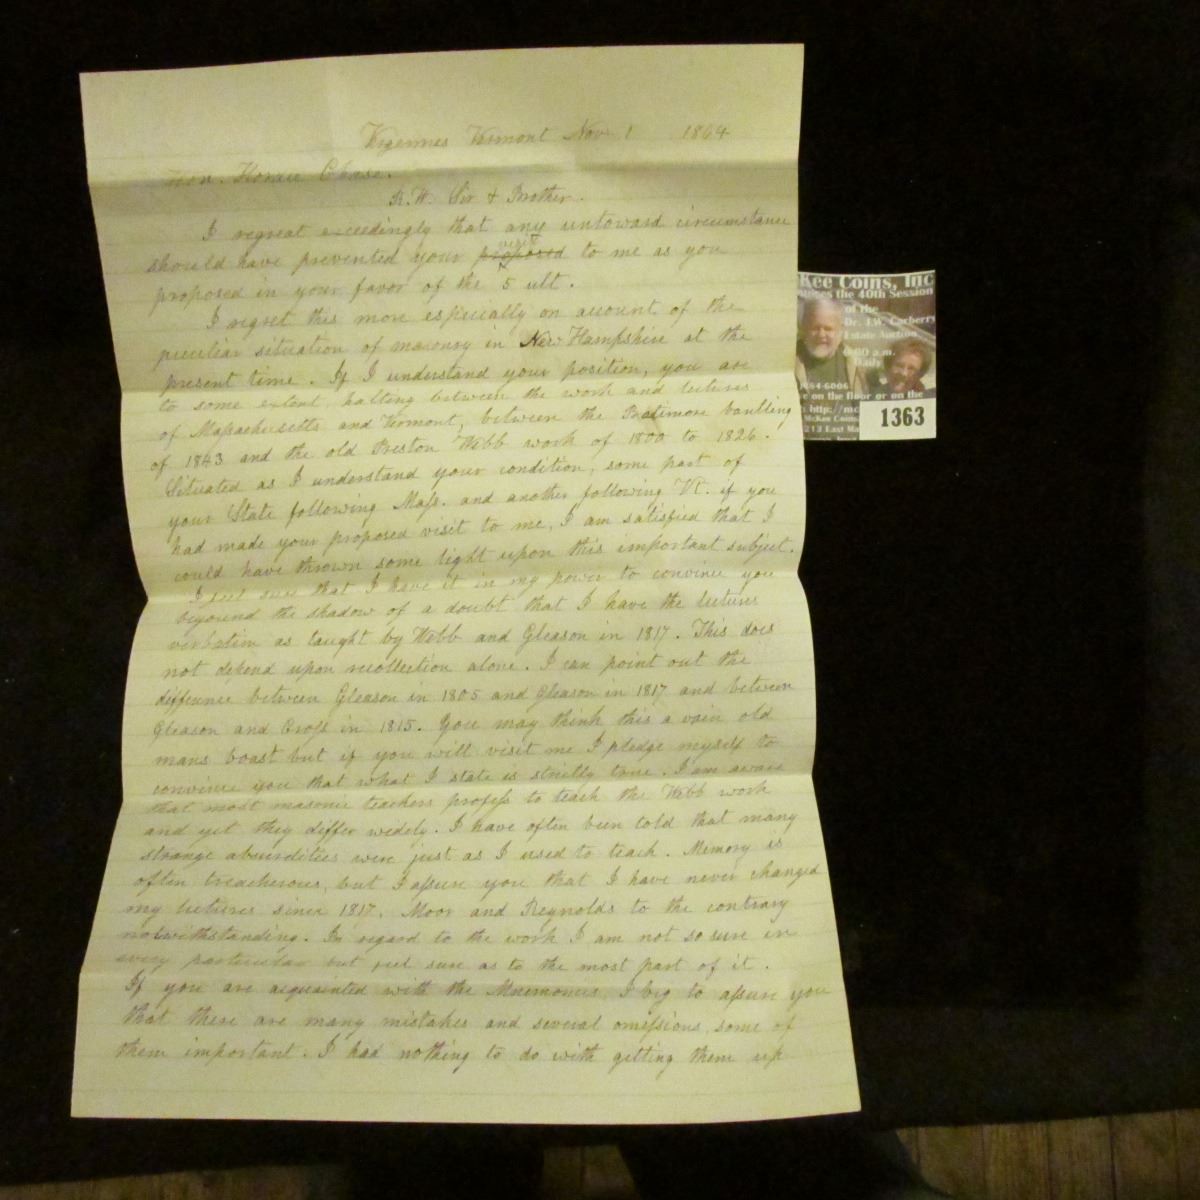 Vergennes Vermont Nov. 1 1864
Hon. Horace Chase.
R. W. Sir & Brother.
I regreat exceedingly that any untoward circumstance
should have prevented your proposed visit to me as you
proposed in your favor of the 5 ult.
I regret this more especially on account of the
peculiar situation of masonry in New Hampshire at the
present time. If I understand your position, you are
to some extent, halting between the work and lectures
of Massachusetts and Vermont, between the Baltimore
of 1843 and the old Preston Webb work of 1800 to 1826.
Situated as I understand your condition, some part of
your State following Mass. and another following Vt. if you
had made your proposed visit to me, I am satisfied that I
could have thrown some light upon this important subject.
I feel sure that I have it in my power to convince you
beyound the shadow of a doubt that I have the lectures
verbatim as taught by Webb and Gleason in 1817. This does
not depend upon recollection alone. I can point out the
difference between Gleason in 1805 and Gleason in 1817 and between
Gleason and Cross in 1815. You may think this a vain old
mans boast but if you will visit me I pledge myself to
convince you that what I state is strictly true. I am aware
that most masonic teachers profess to teach the Webb work
and yet they differ widely. I have often been told that many
strange absurdities were just as I used to teach. Memory is
often treacherous, but I assure you that I have never changed
my lectures since 1817. Moor and Reynolds to the contrary
notwithstanding. In regard to the work I am not so sure in
every particular but feel sure as to the most part of it.
If you are acquainted with the Mnemonics, I beg to assure you
that there are many mistakes and several omissions, some of
them important. I had nothing to do with getting them up
Kee Coins, Inc
the 40th Session
of the
Dr. J.W. Carberry
Estate Auction
a.m.
Daily
on the floor or on the
http://mc
McKee Coins
213 East Ma
1363